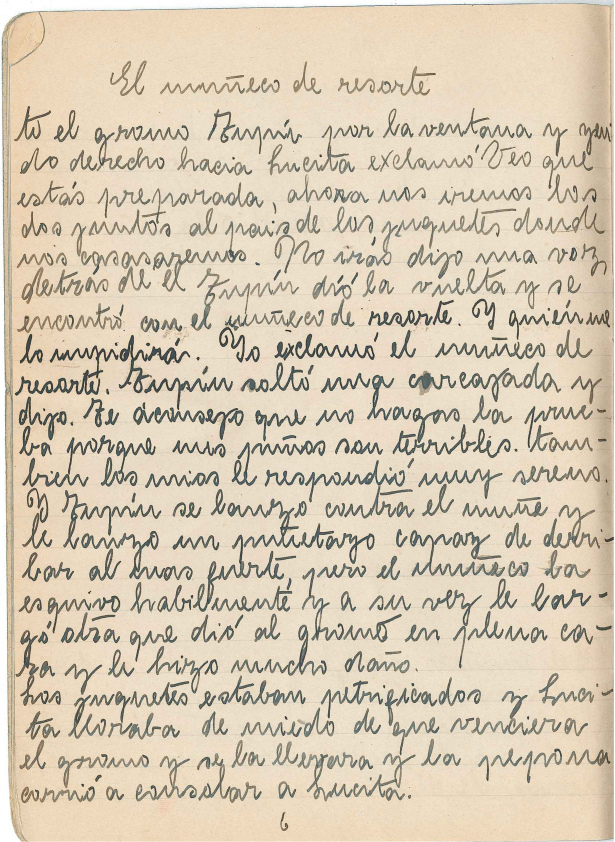 El muñeco de resorte
tó el gnomo Zupín por la ventana y yen
do derecho hacia Lucita exclamó Veo que
estás preparada, ahora nos iremos los
dos juntos al pais de los juguetes donde
nos casasaremos. No irás dijo una voz
detrás de el Zupín dió la vuelta y se
encontró con el muñeco de resorte. Y quién me
lo impidirá. Yo exclamó el muñeco de
resorte. Zupín soltó una carcazada y
dijo. Te aconsejo que no hagas la prue-
ba porque mis puños son terribles. Tam-
bien los mios le respondió muy sereno.
Y Zupín se lanzo contra el muñe y
le lanzo un puñetazo capaz de derri-
bar al mas fuerte, pero el muñeco la
esquivo habilmente y a su vez le lar-
gó otra que dió al gnomo en plena ca-
ra y le hizo mucho daño.
Los juguetes estaban petrificados y Luci-
ta lloraba de miedo de que venciera
el gnomo y se la llevara y la pepona
corrió a consolar a Lucita.
6